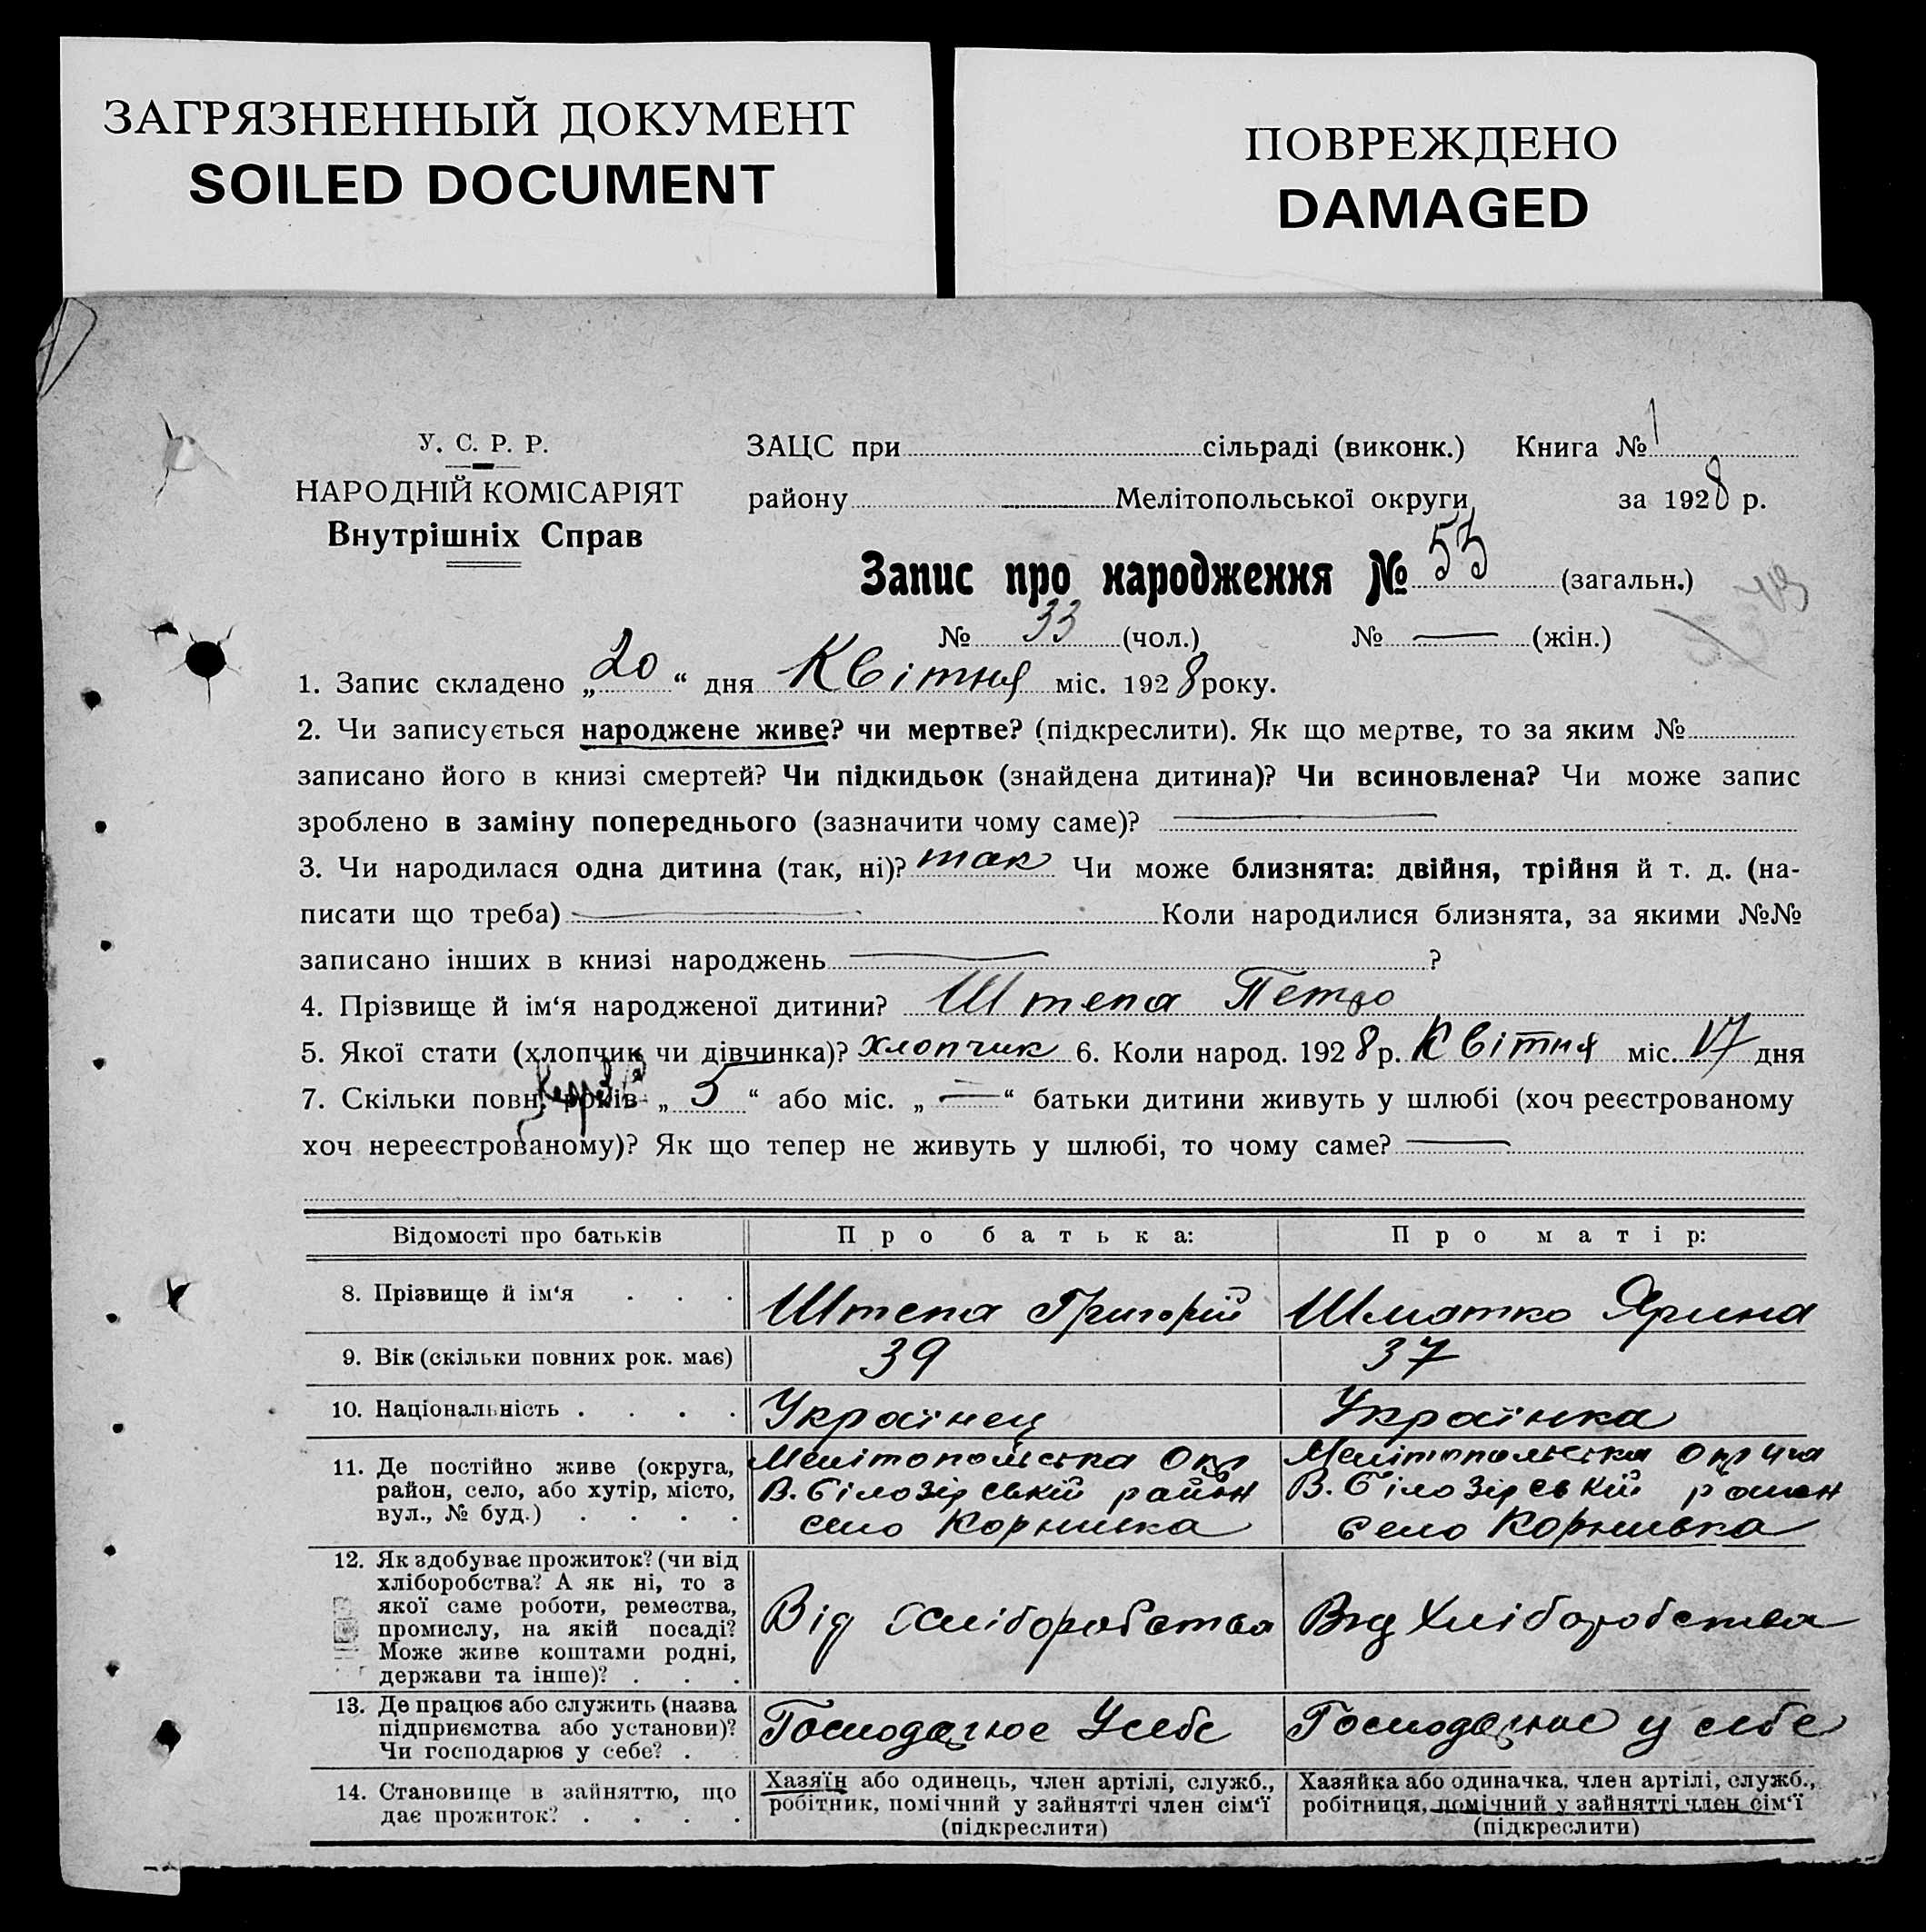 ЗАГРЯЗНЕННЫЙ ДОКУМЕНТ
SOILED DOCUMENT
ПОВРЕЖДЕНО
DAMAGED
У. С. Р. Р.
НАРОДНІЙ КОМІСАРІЯТ
Внутрішніх Справ
ЗАЦС при сільраді (виконк.) Книга № 1
району Мелітопольської округи за 1928 р.
Запис про народження № 53 (загальн.)
№ 33 (чол.) № — (жін.)
1. Запис складено „20“ дня Квітня міс. 1928 року.
2. Чи записується народжене живе? чи мертве? (підкреслити). Як що мертве, то за яким №
записано його в книзі смертей? Чи підкидьок (знайдена дитина)? Чи всиновлена? Чи може запис
зроблено в заміну попереднього (зазначити чому саме)? —
3. Чи народилася одна дитина (так, ні)? так Чи може близнята: двійня, трійня й т. д. (на-
писати що треба) — Коли народилися близнята, за якими №№
записано інших в книзі народжень — ?
4. Прізвище й ім‘я народженої дитини? Штепа Петро
5. Якої стати (хлопчик чи дівчинка)? хлопчик 6. Коли народ. 1928 р. Квітня міс. 17 дня
7. Скільки повн. років „5“ або міс. „—“ батьки дитини живуть у шлюбі (хоч реєстрованому
хоч нереєстрованому)? Як що тепер не живуть у шлюбі, то чому саме? —
Відомості про батьків Про батька: Про матір:
8. Прізвище й ім‘я . . . Штепа Григорій Шматко Ярина
9. Вік (скільки повних рок. має) 39 37
10. Національність . . . . Українец Українка
11. Де постійно живе (округа,
район, село, або хутір, місто,
вул., № буд.) . . . .
Мелітопольська Окр
В. Білозірській район
село Корнивка
Мелітопольська Округа
В. Білозірській район
село Корнивка
12. Як здобуває прожиток? (чи від
хліборобства? А як ні, то з
якої саме роботи, ремества,
промислу, на якій посаді?
Може живе коштами родні,
держави та інше)? . . .
Від хліборобства
Від Хліборобства
13. Де працює або служить (назва
підприємства або установи)?
Чи господарює у себе? . .
Господарює У себе
Господарює у себе
14. Становище в зайняттю, що
дає прожиток? . . . .
Хазяїн або одинець, член артілі, служб.,
робітник, помічний у зайнятті член сім‘ї
(підкреслити)
Хазяйка або одиначка, член артілі, служб.,
робітниця, помічний у зайнятті член сім‘ї
(підкреслити)